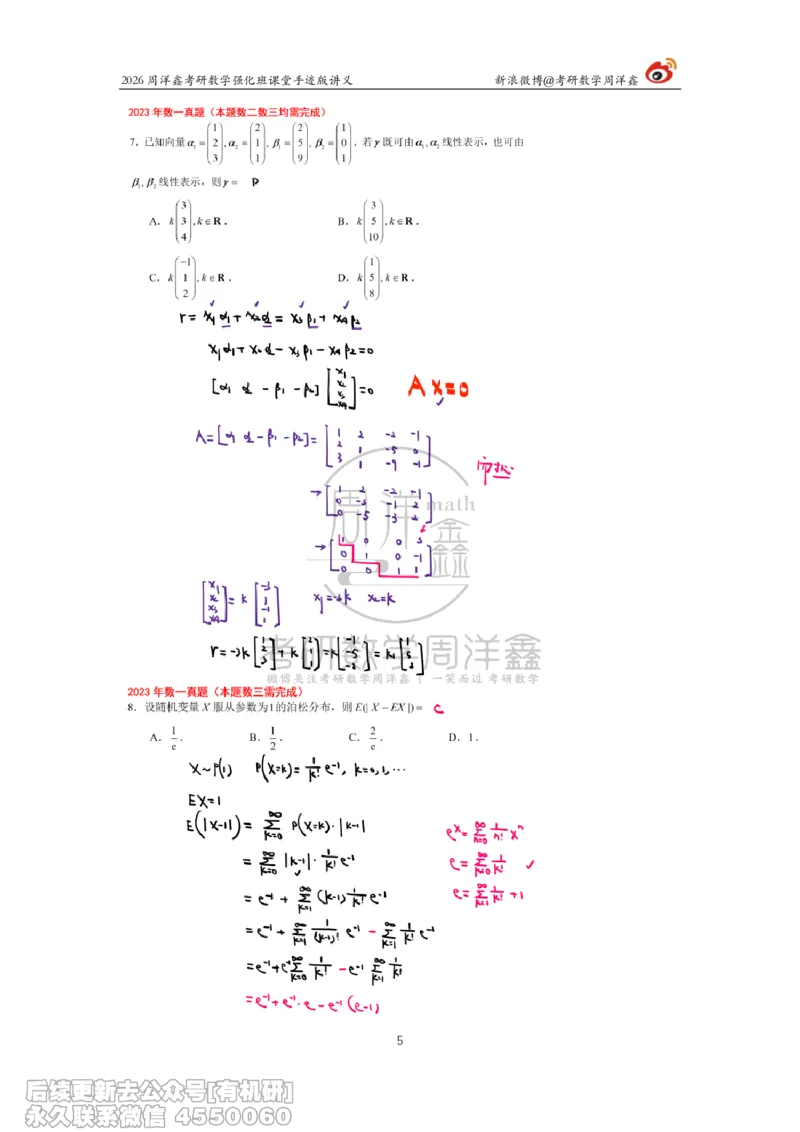 2026 周洋鑫考研数学强化班课堂手迹版讲义 新浪微博@考研数学周洋鑫
2023 年数一真题（本题数二数三均需完成）
7. 已知向量 α₁ = (1, 2, 3)ᵀ, α₂ = (2, 1, 1)ᵀ, β₁ = (2, 5, 9)ᵀ, β₂ = (1, 0, 1)ᵀ. 若 γ 既可由 α₁, α₂ 线性表示，也可由
β₁, β₂ 线性表示，则 γ = D
A. k (3, 3, 4)ᵀ, k∈R. B. k (3, 5, 10)ᵀ, k∈R.
C. k (-1, 1, 2)ᵀ, k∈R. D. k (1, 5, 8)ᵀ, k∈R.
r = x₁α₁ + x₂α₂ = x₃β₁ + x₄β₂
x₁α₁ + x₂α₂ - x₃β₁ - x₄β₂ = 0
[α₁ α₂ -β₁ -β₂] [x₁ x₂ x₃ x₄]ᵀ = 0 Ax=0
A = [α₁ α₂ -β₁ -β₂] = [1 2 -2 -1; 2 1 -5 0; 3 1 -9 -1]
→ [1 2 -2 -1; 0 -3 -1 2; 0 -5 -3 2]
→ [1 0 0 3; 0 1 0 -1; 0 0 1 1]
[x₁ x₂ x₃ x₄]ᵀ = k [-3 1 -1 1]ᵀ x₁=-3k x₂=k
r = -3k [1 2 3]ᵀ + k [2 1 1]ᵀ = k [-1 -5 -8]ᵀ = k₁ [1 5 8]ᵀ
周洋鑫 math
考研数学周洋鑫
微博关注考研数学周洋鑫 | 一笑而过 考研数学
2023 年数一真题（本题数三需完成）
8. 设随机变量 X 服从参数为1的泊松分布，则 E(|X-EX|)= C
A. 1/e. B. 1/2. C. 2/e. D. 1.
X~P(1) P(X=k) = 1/k! e⁻¹, k=0,1,⋯
EX=1
E(|X-1|) = ∑_{k=0}^{∞} P(X=k)·|k-1| eˣ = ∑_{n=0}^{∞} 1/n! xⁿ
= ∑_{k=0}^{∞} |k-1|·1/k! e⁻¹ e = ∑_{k=0}^{∞} 1/k! ✓
= e⁻¹ + ∑_{k=1}^{∞} (k-1) 1/k! e⁻¹ e = ∑_{k=1}^{∞} 1/k! +1
= e⁻¹ + ∑_{k=1}^{∞} 1/(k-1)! e⁻¹ - ∑_{k=1}^{∞} 1/k! e⁻¹
= e⁻¹ + e⁻¹ ∑_{k=0}^{∞} 1/k! - e⁻¹ ∑_{k=1}^{∞} 1/k!
= e⁻¹ + e⁻¹·e - e⁻¹(e-1)
5
后续更新去公众号[有机研]
永久联系微信 4550060